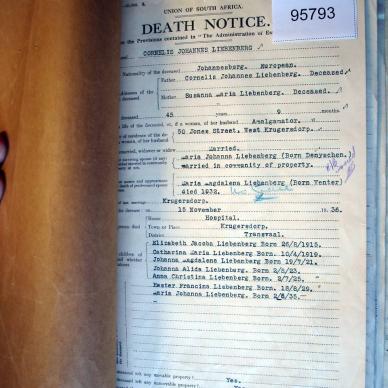 95793
UNION OF SOUTH AFRICA.
DEATH NOTICE.
the Provisions contained in "The Administration of Es
CORNELIS JOHANNES LIEBENBERG
Johannesburg. European.
Nationality of the deceased
Father Cornelis Johannes Liebenberg. Deceased.
Mother Susanna Maria Liebenberg. Deceased.
deceased 45 years 9 months
life of the deceased, or, if a woman, of her husband Amalgamator.
50 Jones Street, West Krugersdorp.
married, widower or widow Married.
Maria Johanna Liebenberg (Born Denyschen.)
Married in community of property.
Maria Magdalena Liebenberg (Born Venter)
died 1932.
Krugersdorp.
15 November 1936.
Hospital.
Town or Place Krugersdorp.
District Transvaal.
Elizabeth Jacoba Liebenberg Born 26/8/1915.
Catharina Maria Liebenberg Born 10/4/1919.
Johanna Magdalena Liebenberg Born 19/7/21.
Johanna Alida Liebenberg Born 2/5/23.
Anna Christina Liebenberg Born 2/7/25.
Hester Francina Liebenberg Born 18/8/29.
Maria Johanna Liebenberg Born 2/6/35.
deceased left any movable property? Yes.